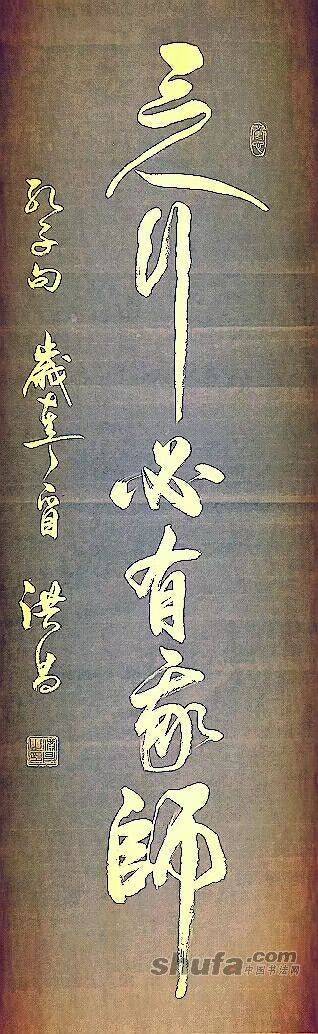 三人行必有我師
孔子句 歲在丁酉 洪昌
shufa.com
中国书法网